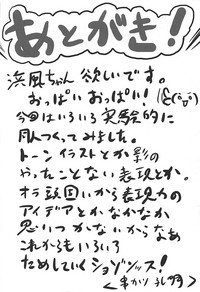 あとがき!
浜風ちゃん欲しいです。
おっぱいおっぱい!
今回はいろいろ実験的に
月人つくってみました。
トーンイラストとか影の
やったことない表現とか。
オラ頭固いから表現力の
アイデアとかなかなか
思いつかないからなあ
これからもいろいろ
ためしていくショゾンッス!